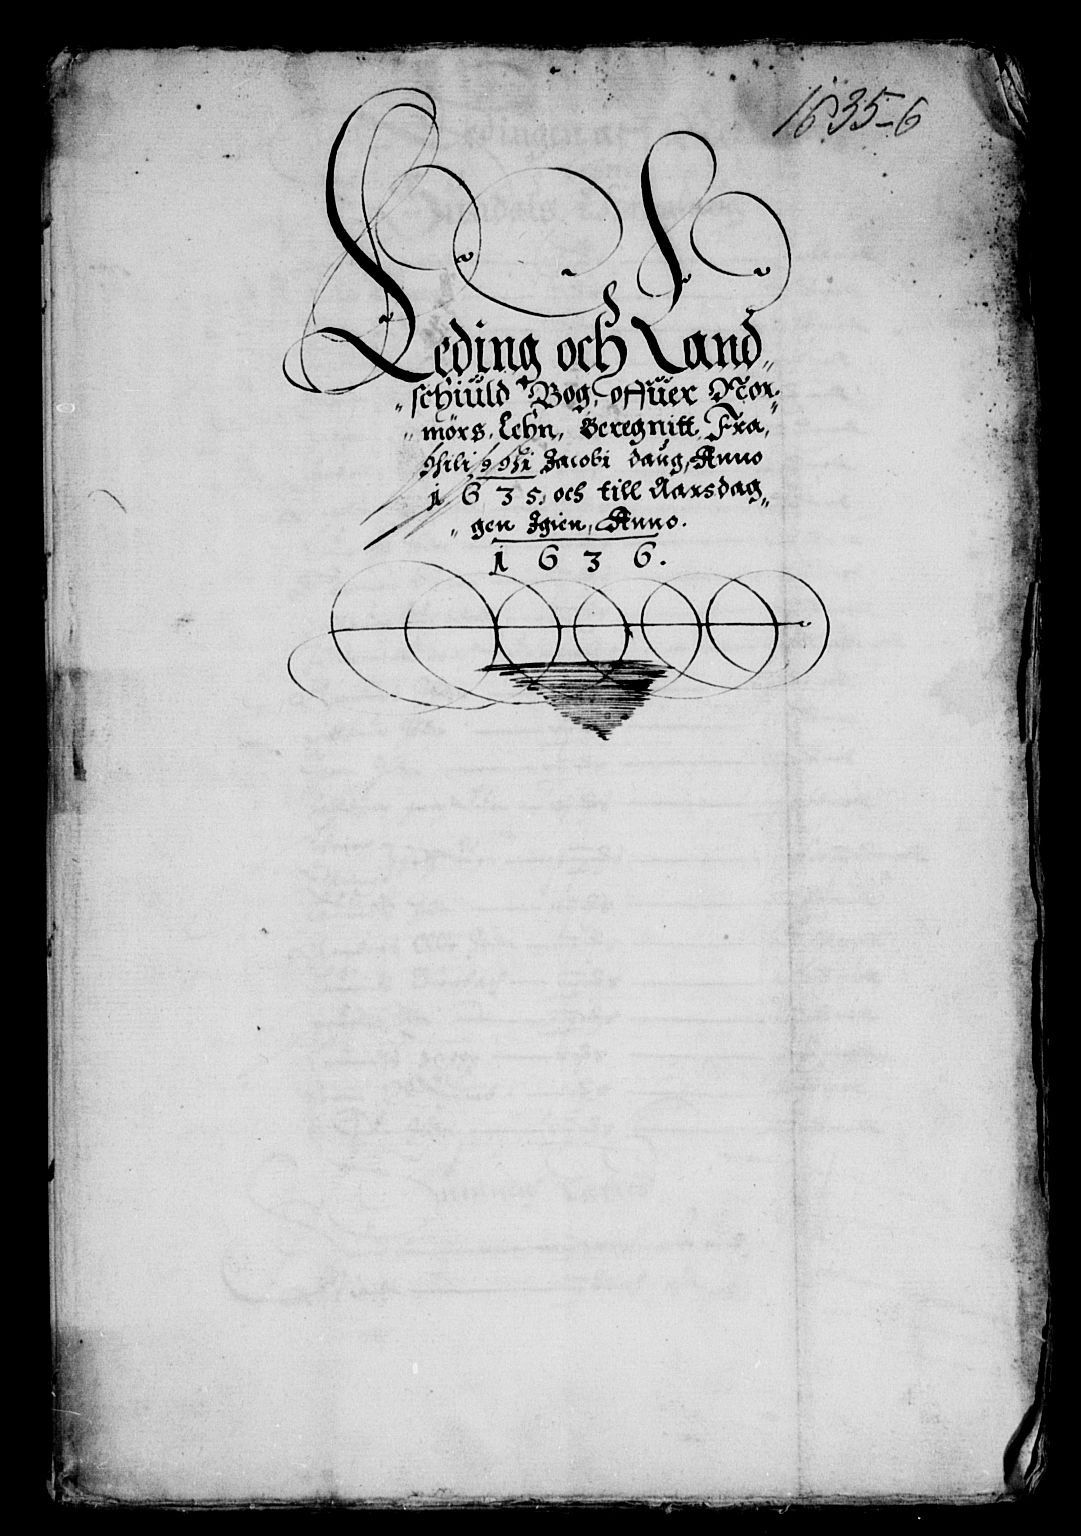 1635-6
Leding och Land„
„schiuld Bog, offuer Nor„
„mörs, Lehn, Beregnitt, Fra„
Philippi Jacobi daug, Anno
1635, och till Aarsdag„
„gen Igien, Anno.
1636.